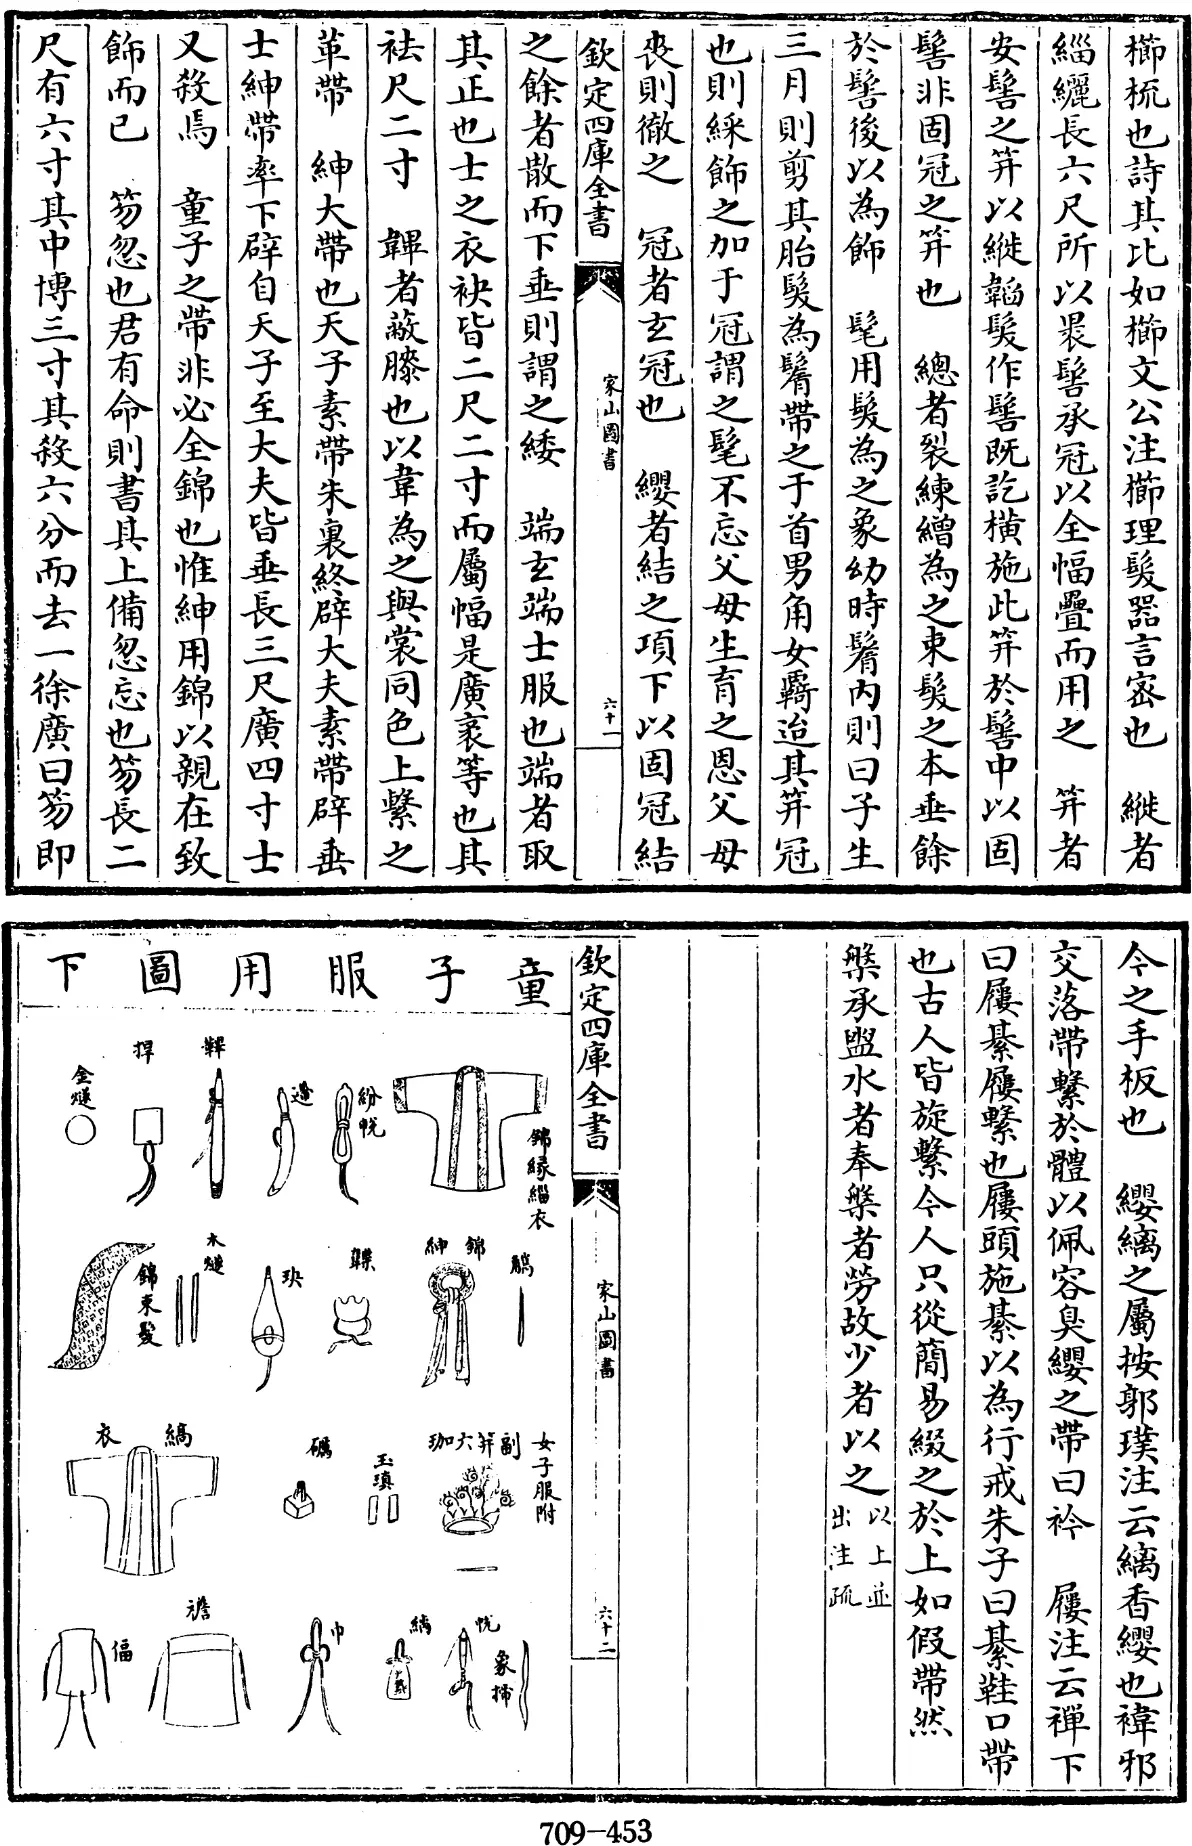 櫛梳也詩其比如櫛文公注櫛理髮器言宻也　縰者
緇纚長六尺所以褁髻承冠以全幅疊而用之　筓者
安髻之筓以縰韜髮作髻既訖橫施此筓於髻中以固
髻非固冠之筓也　總者裂練繒為之束髮之本垂餘
於髻後以為飾　髦用髮為之象幼時鬌内則曰子生
三月則剪其胎髮為鬌帶之于首男角女羇迨其筓冠
也則綵飾之加于冠謂之髦不忘父母生育之恩父母
喪則徹之　冠者玄冠也　纓者結之項下以固冠結
欽定四庫全書
家山圖書
六十一
之餘者散而下垂則謂之緌　端玄端士服也端者取
其正也士之衣袂皆二尺二寸而屬幅是廣袤等也其
袪尺二寸　韠者蔽膝也以韋為之與裳同色上繫之
革帶　紳大帶也天子素帶朱裏終辟大夫素帶辟垂
士紳帶率下辟自天子至大夫皆垂長三尺廣四寸士
又殺焉　童子之帶非必全錦也惟紳用錦以親在致
飾而已　笏忽也君有命則書其上備忽忘也笏長二
尺有六寸其中博三寸其殺六分而去一徐廣曰笏即
今之手板也　纓縭之屬按郭璞注云縭香纓也褘邪
交落帶繫於體以佩容臭纓之帶曰衿　屨注云禪下
曰屨綦屨繫也屨頭施綦以為行戒朱子曰綦鞋口帶
也古人皆旋繫今人只從簡易綴之於上如假帶然
槃承盥水者奉槃者勞故少者以之
以上並
出注疏
欽定四庫全書
家山圖書
六十二
童子服用圖下
錦緣緇衣
紛帨
遰
鞞
捍
金燧
觿
錦紳
韘
玦
木燧
錦束髮
女子服附
副筓六珈
玉瑱
礪
縞衣
象揥
帨
縭
巾
襜
偪
709-453